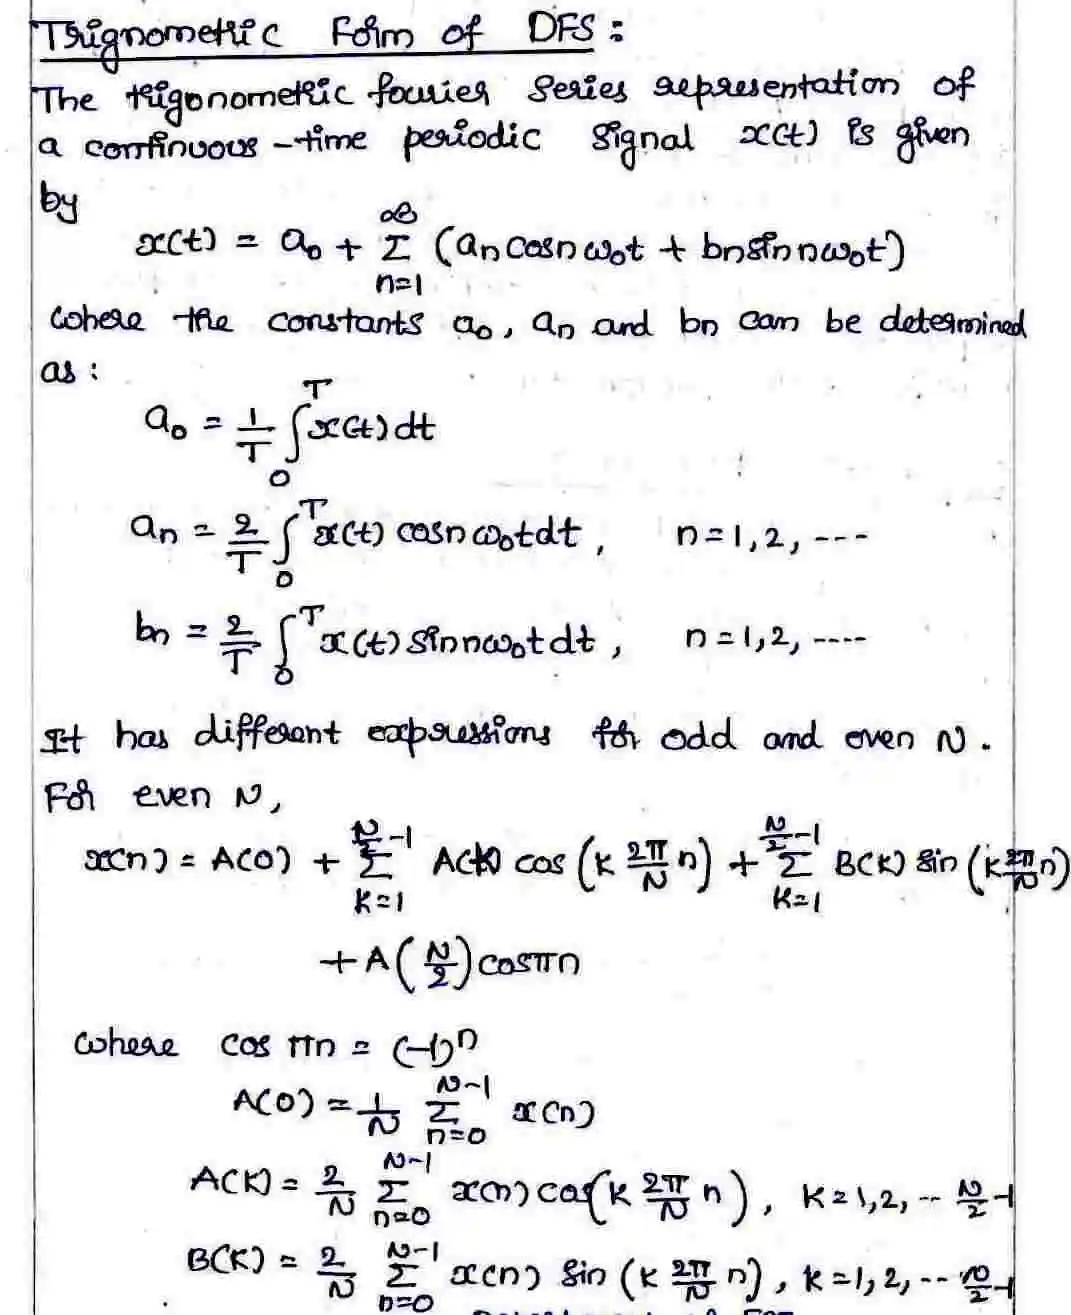 Trignometric Form of DFS :
The trigonometric fourier series representation of
a continuous-time periodic signal x(t) is given
by
x(t) = a₀ + Σ_{n=1}^{∞} (aₙ cosnω₀t + bₙ sinnω₀t)
where the constants a₀, aₙ and bₙ can be determined
as :
a₀ = 1/T ∫₀ᵀ x(t) dt
aₙ = 2/T ∫₀ᵀ x(t) cosnω₀tdt, n=1,2, ---
bₙ = 2/T ∫₀ᵀ x(t) sinnω₀tdt, n=1,2, ----
It has different expressions for odd and even N.
For even N,
x(n) = A(0) + Σ_{k=1}^{N/2-1} A(k) cos (k 2π/N n) + Σ_{k=1}^{N/2-1} B(k) sin (k 2π/N n)
+ A(N/2) cosπn
where cos πn = (-1)ⁿ
A(0) = 1/N Σ_{n=0}^{N-1} x(n)
A(k) = 2/N Σ_{n=0}^{N-1} x(n) cos(k 2π/N n), k=1,2, -- N/2-1
B(k) = 2/N Σ_{n=0}^{N-1} x(n) sin (k 2π/N n), k=1,2, -- N/2-1